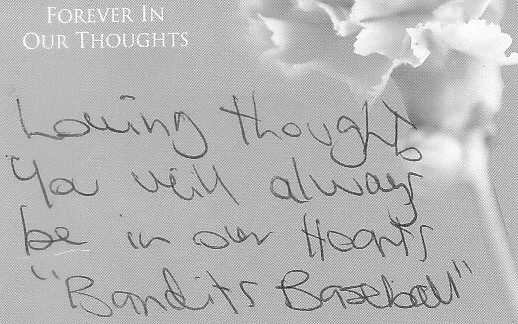 FOREVER IN
OUR THOUGHTS
Loving thoughts
You will always
be in our Hearts
"Bandits Baseball"